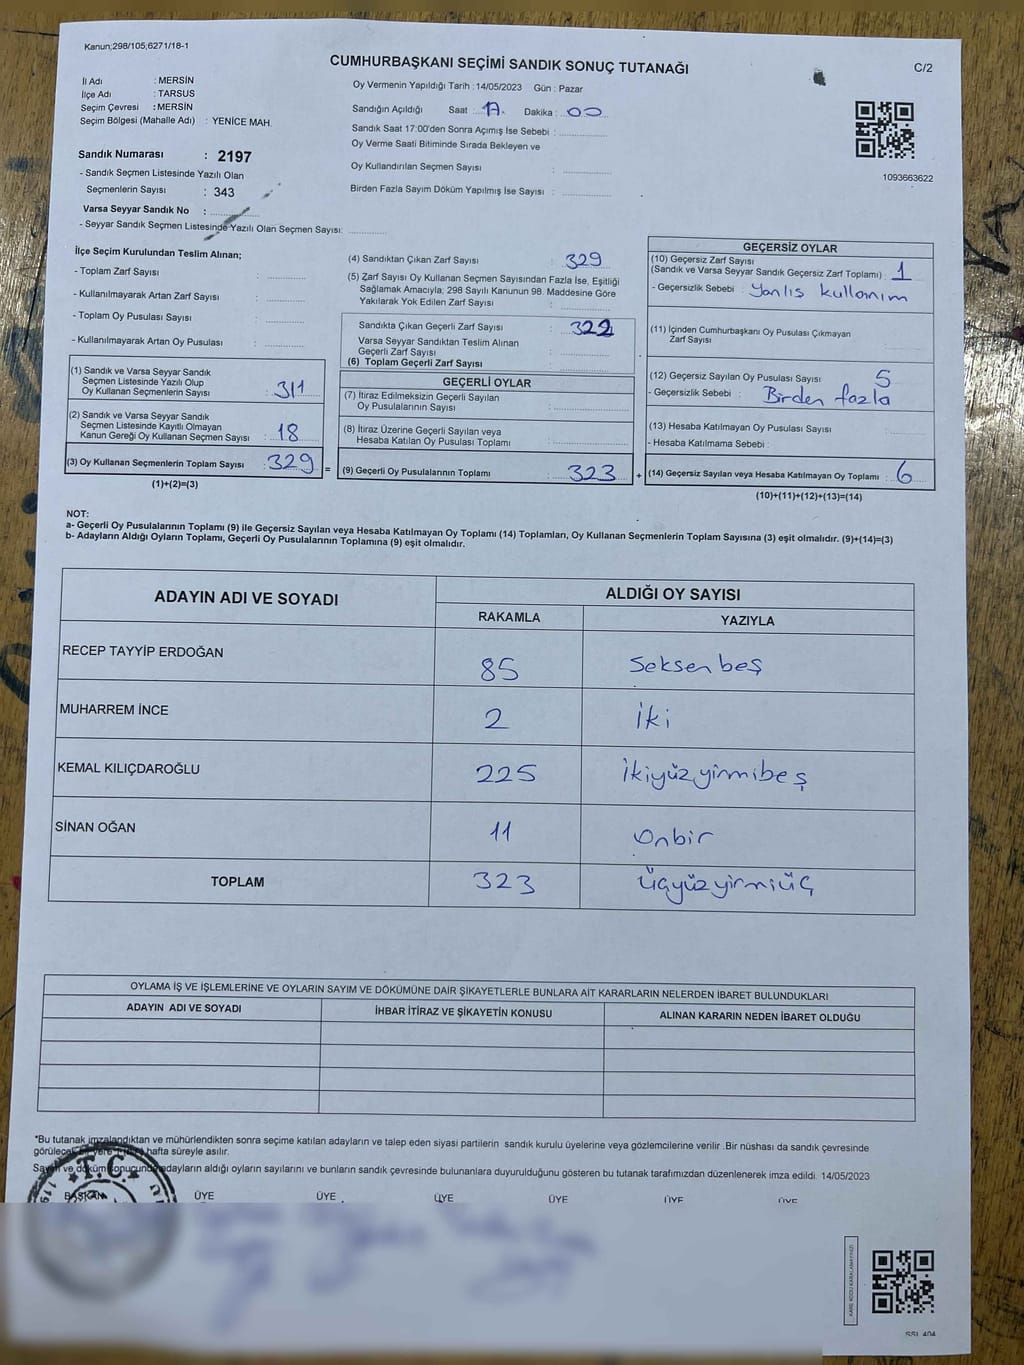 Kanun;298/105;6271/18-1
CUMHURBAŞKANI SEÇİMİ SANDIK SONUÇ TUTANAĞI
C/2
İl Adı : MERSİN
İlçe Adı : TARSUS
Seçim Çevresi : MERSİN
Seçim Bölgesi (Mahalle Adı) : YENİCE MAH.
Oy Vermenin Yapıldığı Tarih : 14/05/2023 Gün : Pazar
Sandığın Açıldığı Saat : 17. Dakika : 00
Sandık Saat 17:00'den Sonra Açımış İse Sebebi :
Oy Verme Saati Bitiminde Sırada Bekleyen ve
Oy Kullandırılan Seçmen Sayısı :
Birden Fazla Sayım Döküm Yapılmış İse Sayısı :
1093663622
Sandık Numarası : 2197
- Sandık Seçmen Listesinde Yazılı Olan
Seçmenlerin Sayısı : 343
Varsa Seyyar Sandık No :
- Seyyar Sandık Seçmen Listesinde Yazılı Olan Seçmen Sayısı:
İlçe Seçim Kurulundan Teslim Alınan;
- Toplam Zarf Sayısı :
- Kullanılmayarak Artan Zarf Sayısı :
- Toplam Oy Pusulası Sayısı :
- Kullanılmayarak Artan Oy Pusulası :
(1) Sandık ve Varsa Seyyar Sandık
Seçmen Listesinde Yazılı Olup
Oy Kullanan Seçmenlerin Sayısı : 311
(2) Sandık ve Varsa Seyyar Sandık
Seçmen Listesinde Kayıtlı Olmayan
Kanun Gereği Oy Kullanan Seçmen Sayısı : 18
(3) Oy Kullanan Seçmenlerin Toplam Sayısı : 329 =
(1)+(2)=(3)
(4) Sandıktan Çıkan Zarf Sayısı : 329
(5) Zarf Sayısı Oy Kullanan Seçmen Sayısından Fazla İse, Eşitliği
Sağlamak Amacıyla; 298 Sayılı Kanunun 98. Maddesine Göre
Yakılarak Yok Edilen Zarf Sayısı :
Sandıkta Çıkan Geçerli Zarf Sayısı :
Varsa Seyyar Sandıktan Teslim Alınan
Geçerli Zarf Sayısı :
(6) Toplam Geçerli Zarf Sayısı :
GEÇERLİ OYLAR
(7) İtiraz Edilmeksizin Geçerli Sayılan
Oy Pusulalarının Sayısı :
(8) İtiraz Üzerine Geçerli Sayılan veya
Hesaba Katılan Oy Pusulası Toplamı :
(9) Geçerli Oy Pusulalarının Toplamı : 323 +
GEÇERSİZ OYLAR
(10) Geçersiz Zarf Sayısı
(Sandık ve Varsa Seyyar Sandık Geçersiz Zarf Toplamı) : 1
- Geçersizlik Sebebi : Yanlıs kullanım
(11) İçinden Cumhurbaşkanı Oy Pusulası Çıkmayan
Zarf Sayısı :
(12) Geçersiz Sayılan Oy Pusulası Sayısı : 5
- Geçersizlik Sebebi : Birden fazla
(13) Hesaba Katılmayan Oy Pusulası Sayısı :
- Hesaba Katılmama Sebebi :
(14) Geçersiz Sayılan veya Hesaba Katılmayan Oy Toplamı : 6
(10)+(11)+(12)+(13)=(14)
NOT:
a- Geçerli Oy Pusulalarının Toplamı (9) ile Geçersiz Sayılan veya Hesaba Katılmayan Oy Toplamı (14) Toplamları, Oy Kullanan Seçmenlerin Toplam Sayısına (3) eşit olmalıdır. (9)+(14)=(3)
b- Adayların Aldığı Oyların Toplamı, Geçerli Oy Pusulalarının Toplamına (9) eşit olmalıdır.
ADAYIN ADI VE SOYADI
ALDIĞI OY SAYISI
RAKAMLA YAZIYLA
RECEP TAYYİP ERDOĞAN 85 Seksen beş
MUHARREM İNCE 2 İki
KEMAL KILIÇDAROĞLU 225 İkiyüz yirmibeş
SİNAN OĞAN 11 Onbir
TOPLAM 323 Üçyüz yirmiüç
OYLAMA İŞ VE İŞLEMLERİNE VE OYLARIN SAYIM VE DÖKÜMÜNE DAİR ŞİKAYETLERLE BUNLARA AİT KARARLARIN NELERDEN İBARET BULUNDUKLARI
ADAYIN ADI VE SOYADI İHBAR İTİRAZ VE ŞİKAYETİN KONUSU ALINAN KARARIN NEDEN İBARET OLDUĞU
*Bu tutanak imzalandıktan ve mühürlendikten sonra seçime katılan adayların ve talep eden siyasi partilerin sandık kurulu üyelerine veya gözlemcilerine verilir .Bir nüshası da sandık çevresinde
görülecek bir yere 1 (bir) hafta süreyle asılır.
Sayım ve döküm sonucunda adayların aldığı oyların sayılarını ve bunların sandık çevresinde bulunanlara duyurulduğunu gösteren bu tutanak tarafımızdan düzenlenerek imza edildi. 14/05/2023
T.C.
BAŞKAN ÜYE ÜYE ÜYE ÜYE ÜYE ÜYE